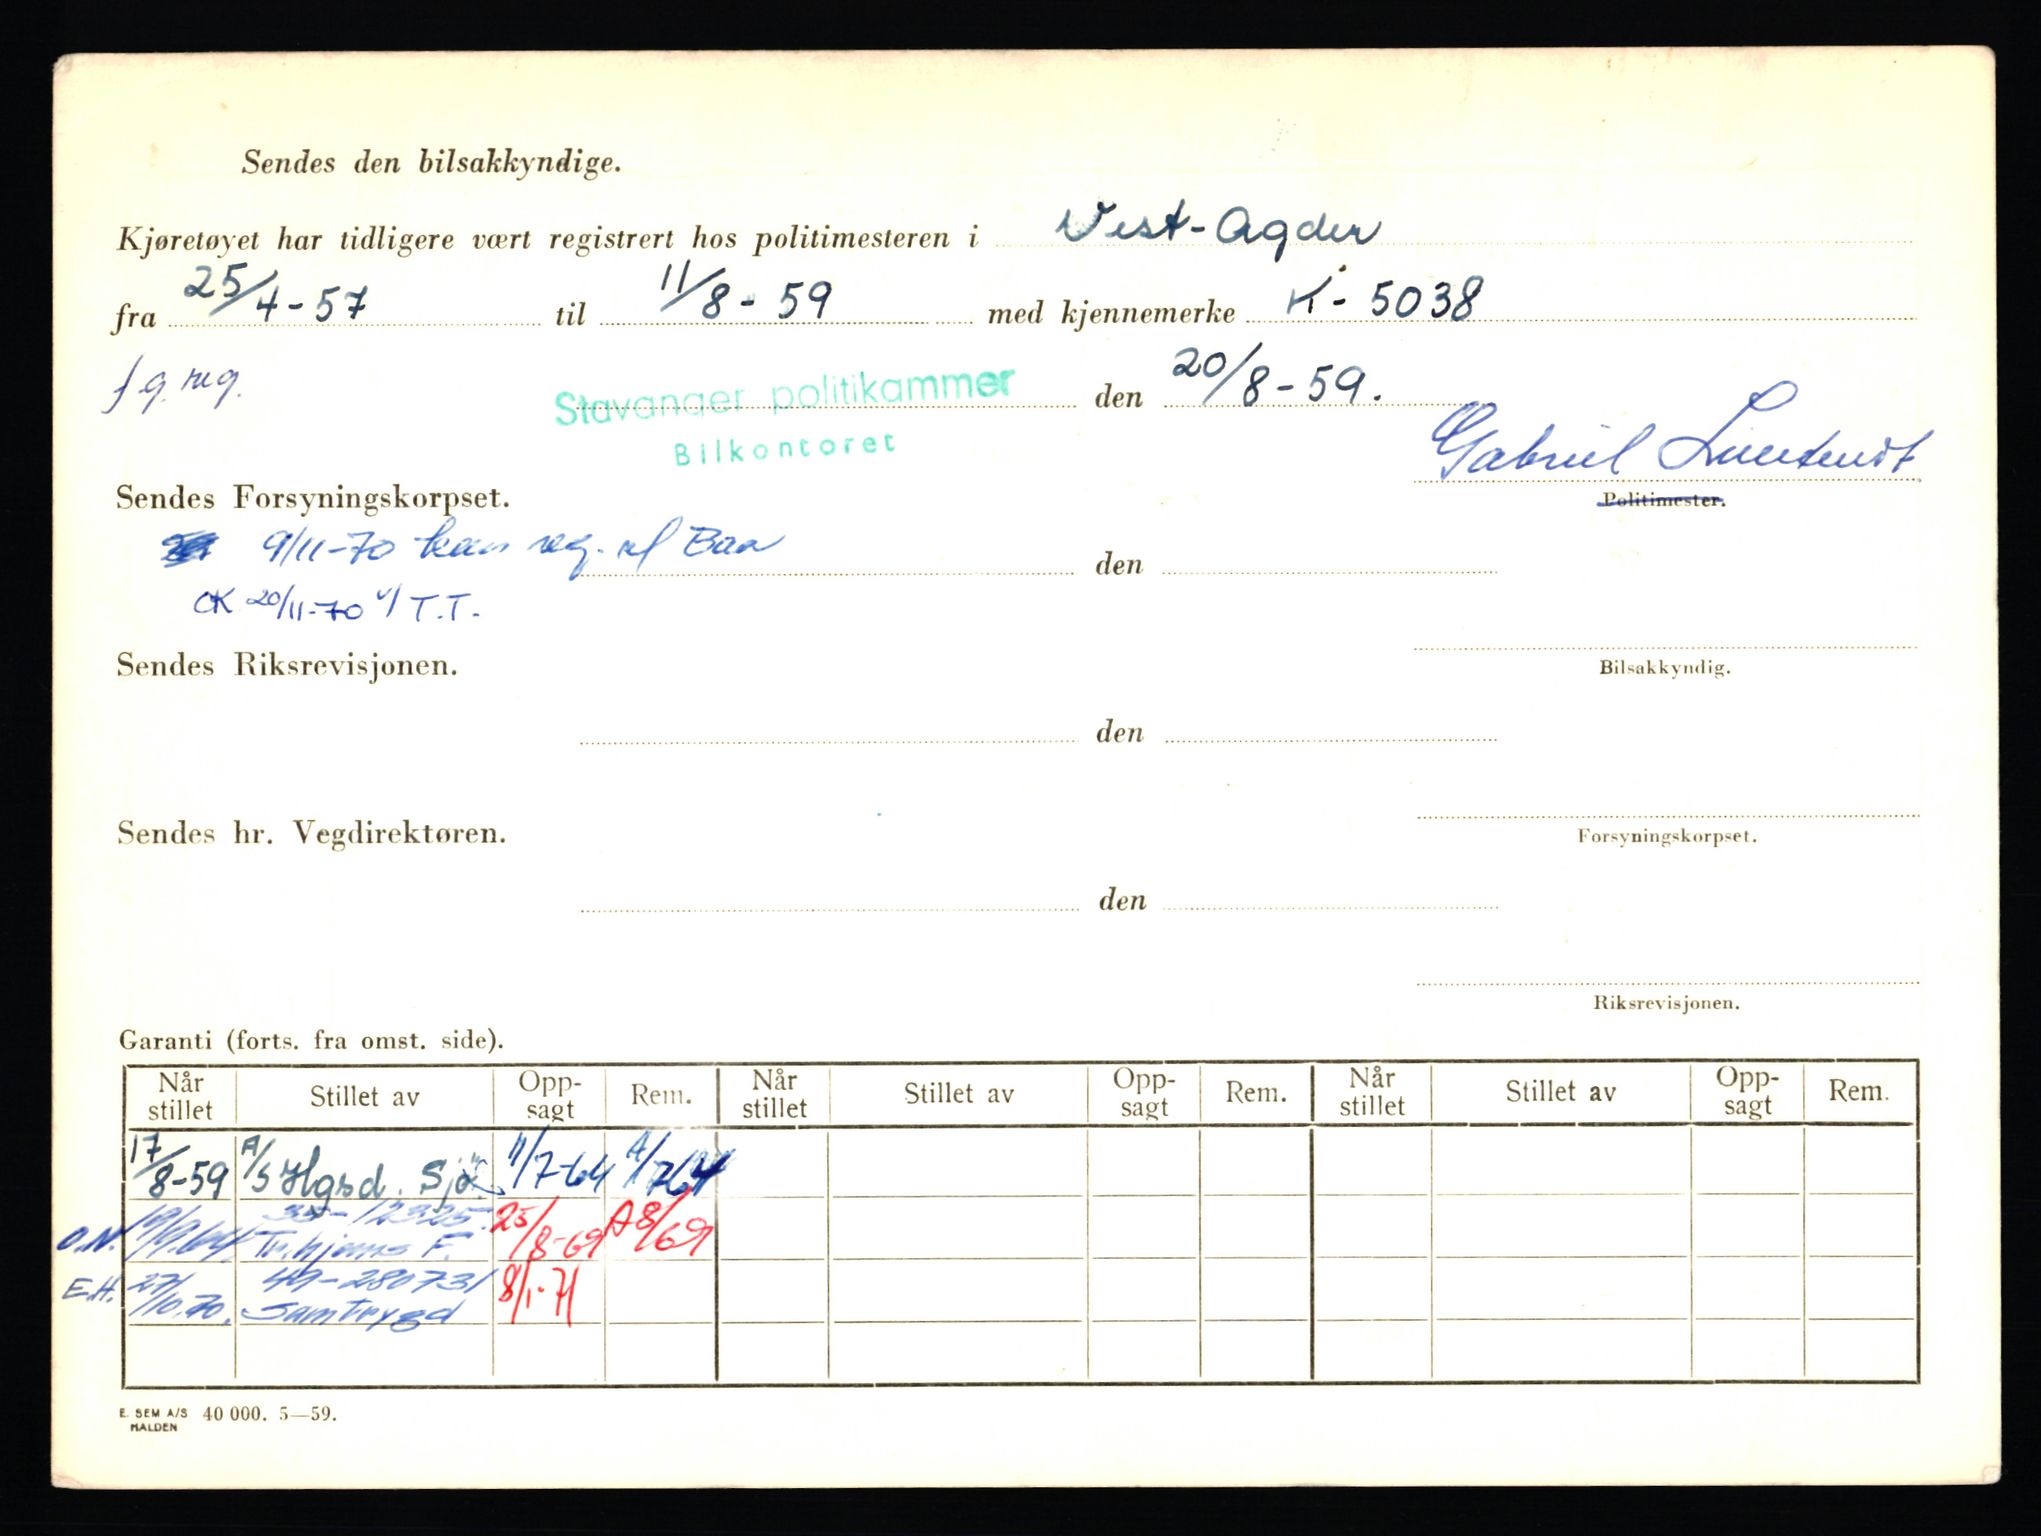 Sendes den bilsakkyndige.
Kjøretøyet har tidligere vært registrert hos politimesteren i Vest-Agder
fra 25/4-57 til 11/8-59 med kjennemerke K-5038
fg. reg. Stavanger politikammer den 20/8-59.
Bilkontoret
Gabriel
Sendes Forsyningskorpset. Politimester.
9/11-70 reg. af Baa den
OK 20/11-70 v/ T.T.
Sendes Riksrevisjonen. Bilsakkyndig.
den
Sendes hr. Vegdirektøren. Forsyningskorpset.
den
Riksrevisjonen.
Garanti (forts. fra omst. side).
Når stillet Stillet av Opp-sagt Rem. Når stillet Stillet av Opp-sagt Rem. Når stillet Stillet av Opp-sagt Rem.
17/8-59 A/S Hgsd. Sjø 11/7-64 A/764
35-12325
O.N. 19/9.64 Tr.hjems F. 25/8-69 A8/69
49-280731
E.H. 27/10.70. Samtrygd 8/1-71
E. SEM A/S HALDEN 40 000. 5—59.